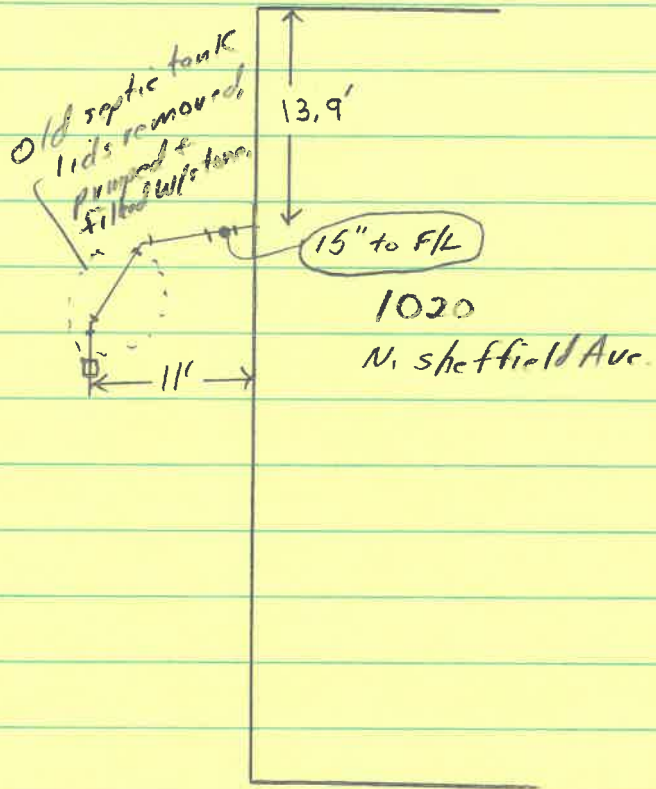 Old septic tank
lids removed,
pumped &
filled W/stone.
13.9'
15" to F/L
1020
N. sheffield Ave.
11'